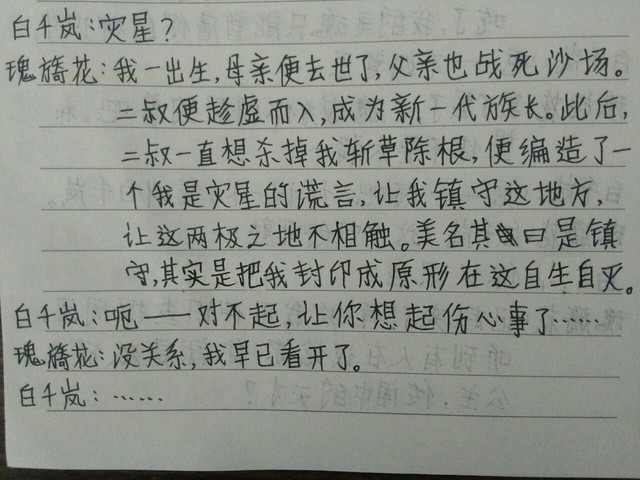 白千岚：灾星？
瑰旖花：我一出生，母亲便去世了，父亲也战死沙场。
二叔便趁虚而入，成为新一代族长。此后，
二叔一直想杀掉我斩草除根，便编造了一
个我是灾星的谎言，让我镇守这地方，
让这两极之地不相触。美名其曰是镇
守，其实是把我封印成原形在这自生自灭。
白千岚：呃——对不起，让你想起伤心事了……
瑰旖花：没关系，我早已看开了。
白千岚：……